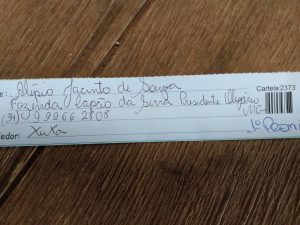 Cartela:2373
e: Alípio Jacinto de Souza
Fazenda Capão da Serra Presidente Olegário
MG
(34) 9 9966 2808
edor: Xuxa
1º